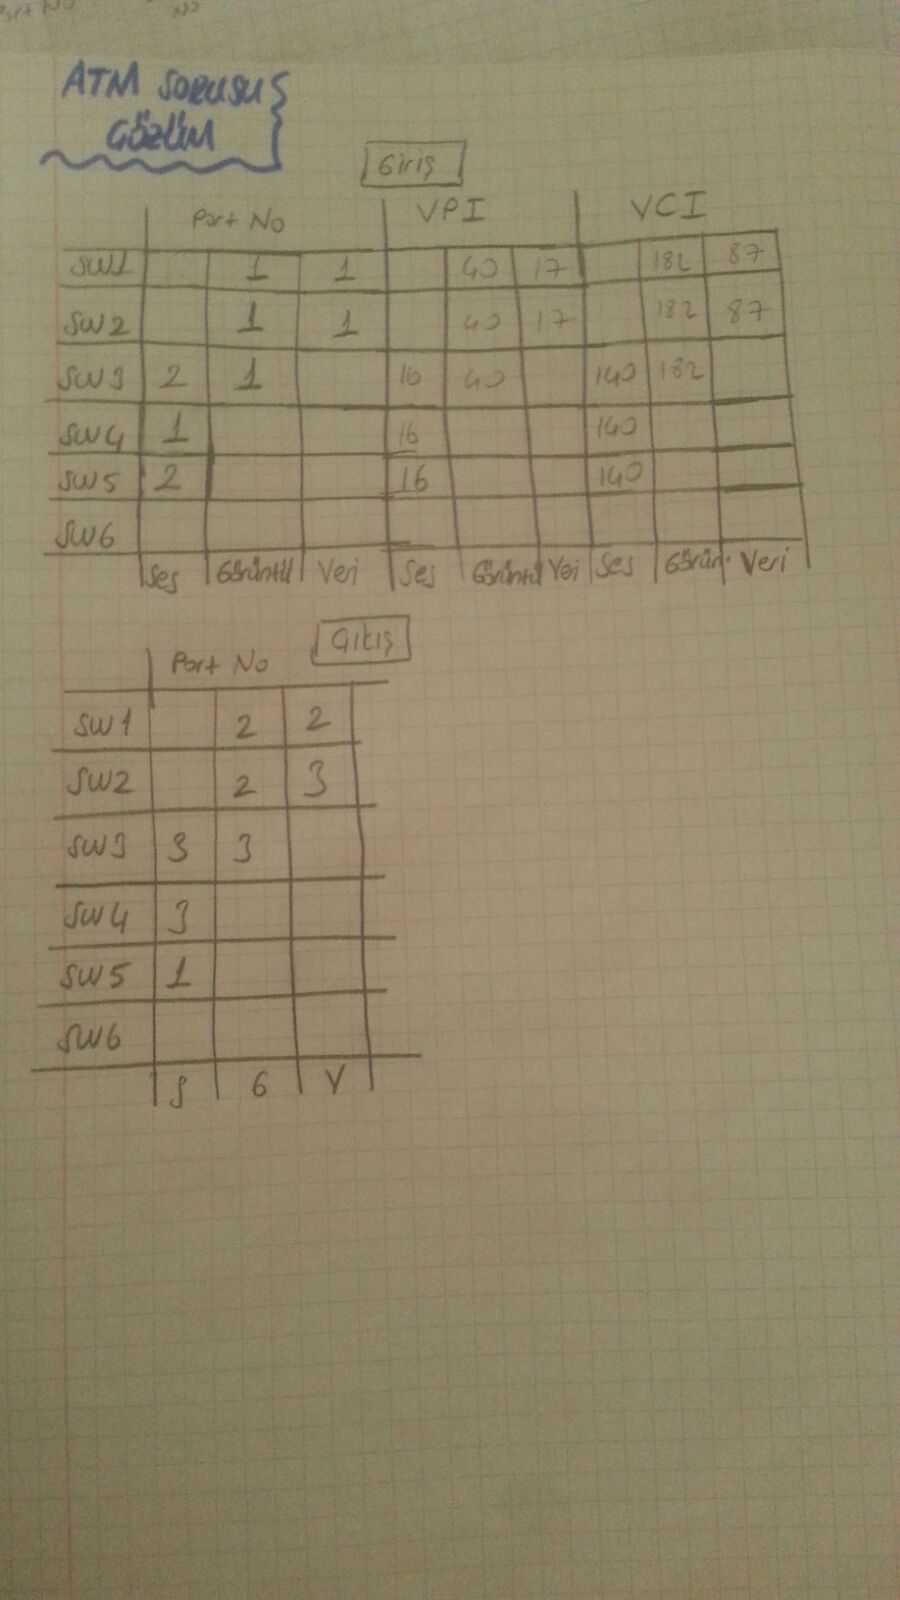 Port No
No
ATM SORUSU
ÇÖZÜM
Giriş
Port No VPI VCI
SW1 1 1 40 17 182 87
SW2 1 1 40 17 182 87
SW3 2 1 16 40 140 182
SW4 1 16 140
SW5 2 16 140
SW6
Ses Görüntü Veri Ses Görüntü Veri Ses Görün. Veri
Çıkış
Port No
SW1 2 2
SW2 2 3
SW3 3 3
SW4 3
SW5 1
SW6
S G V